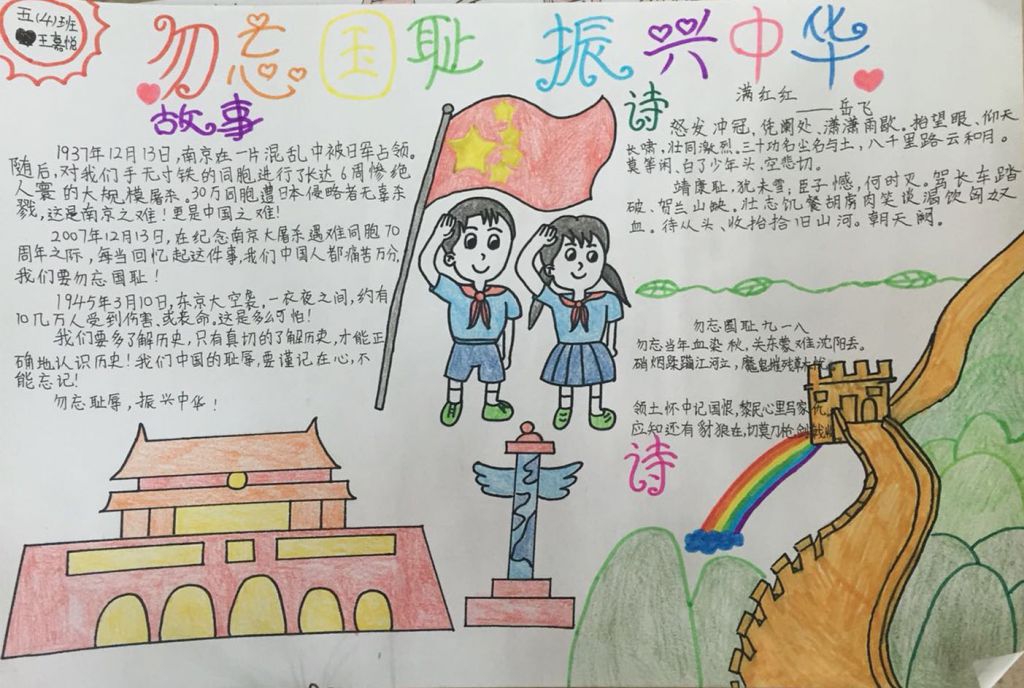 五(4)班
王嘉悦
勿忘国耻 振兴中华
故事
1937年12月13日,南京在一片混乱中被日军占领。
随后,对我们手无寸铁的同胞进行了长达6周惨绝
人寰的大规模屠杀。30万同胞遭日本侵略者无辜杀
戮,这是南京之难!更是中国之难!
2007年12月13日,在纪念南京大屠杀遇难同胞70
周年之际,每当回忆起这件事,我们中国人都痛苦万分,
我们要勿忘国耻!
1945年3月10日,东京大空袭,一衣夜之间,约有
10几万人受到伤害、或丧命。这是多么可怕!
我们要多了解历史,只有真切的了解历史,才能正
确地认识历史!我们中国的耻辱,要谨记在心,不
能忘记!
勿忘耻辱,振兴中华!
诗
满红红
——岳飞
怒发冲冠,凭阑处、潇潇雨歇。抬望眼、仰天
长啸,壮同激烈。三十功名尘名与土,八千里路云和月。
莫等闲、白了少年头、空悲切。
靖康耻,犹未雪;臣子憾,何时灭。驾长车踏
破、贺兰山缺。壮志饥餐胡虏肉笑谈渴饮匈奴
血。待从头、收拾旧山河。朝天阙。
勿忘国耻九一八
勿忘当年血染秋,关东蒙难沈阳丢。
硝烟蹂躏江河立,魔鬼摧残草木
领土怀中记国恨,黎民心里写家仇
应知还有豺狼在,切莫刀枪剑
诗